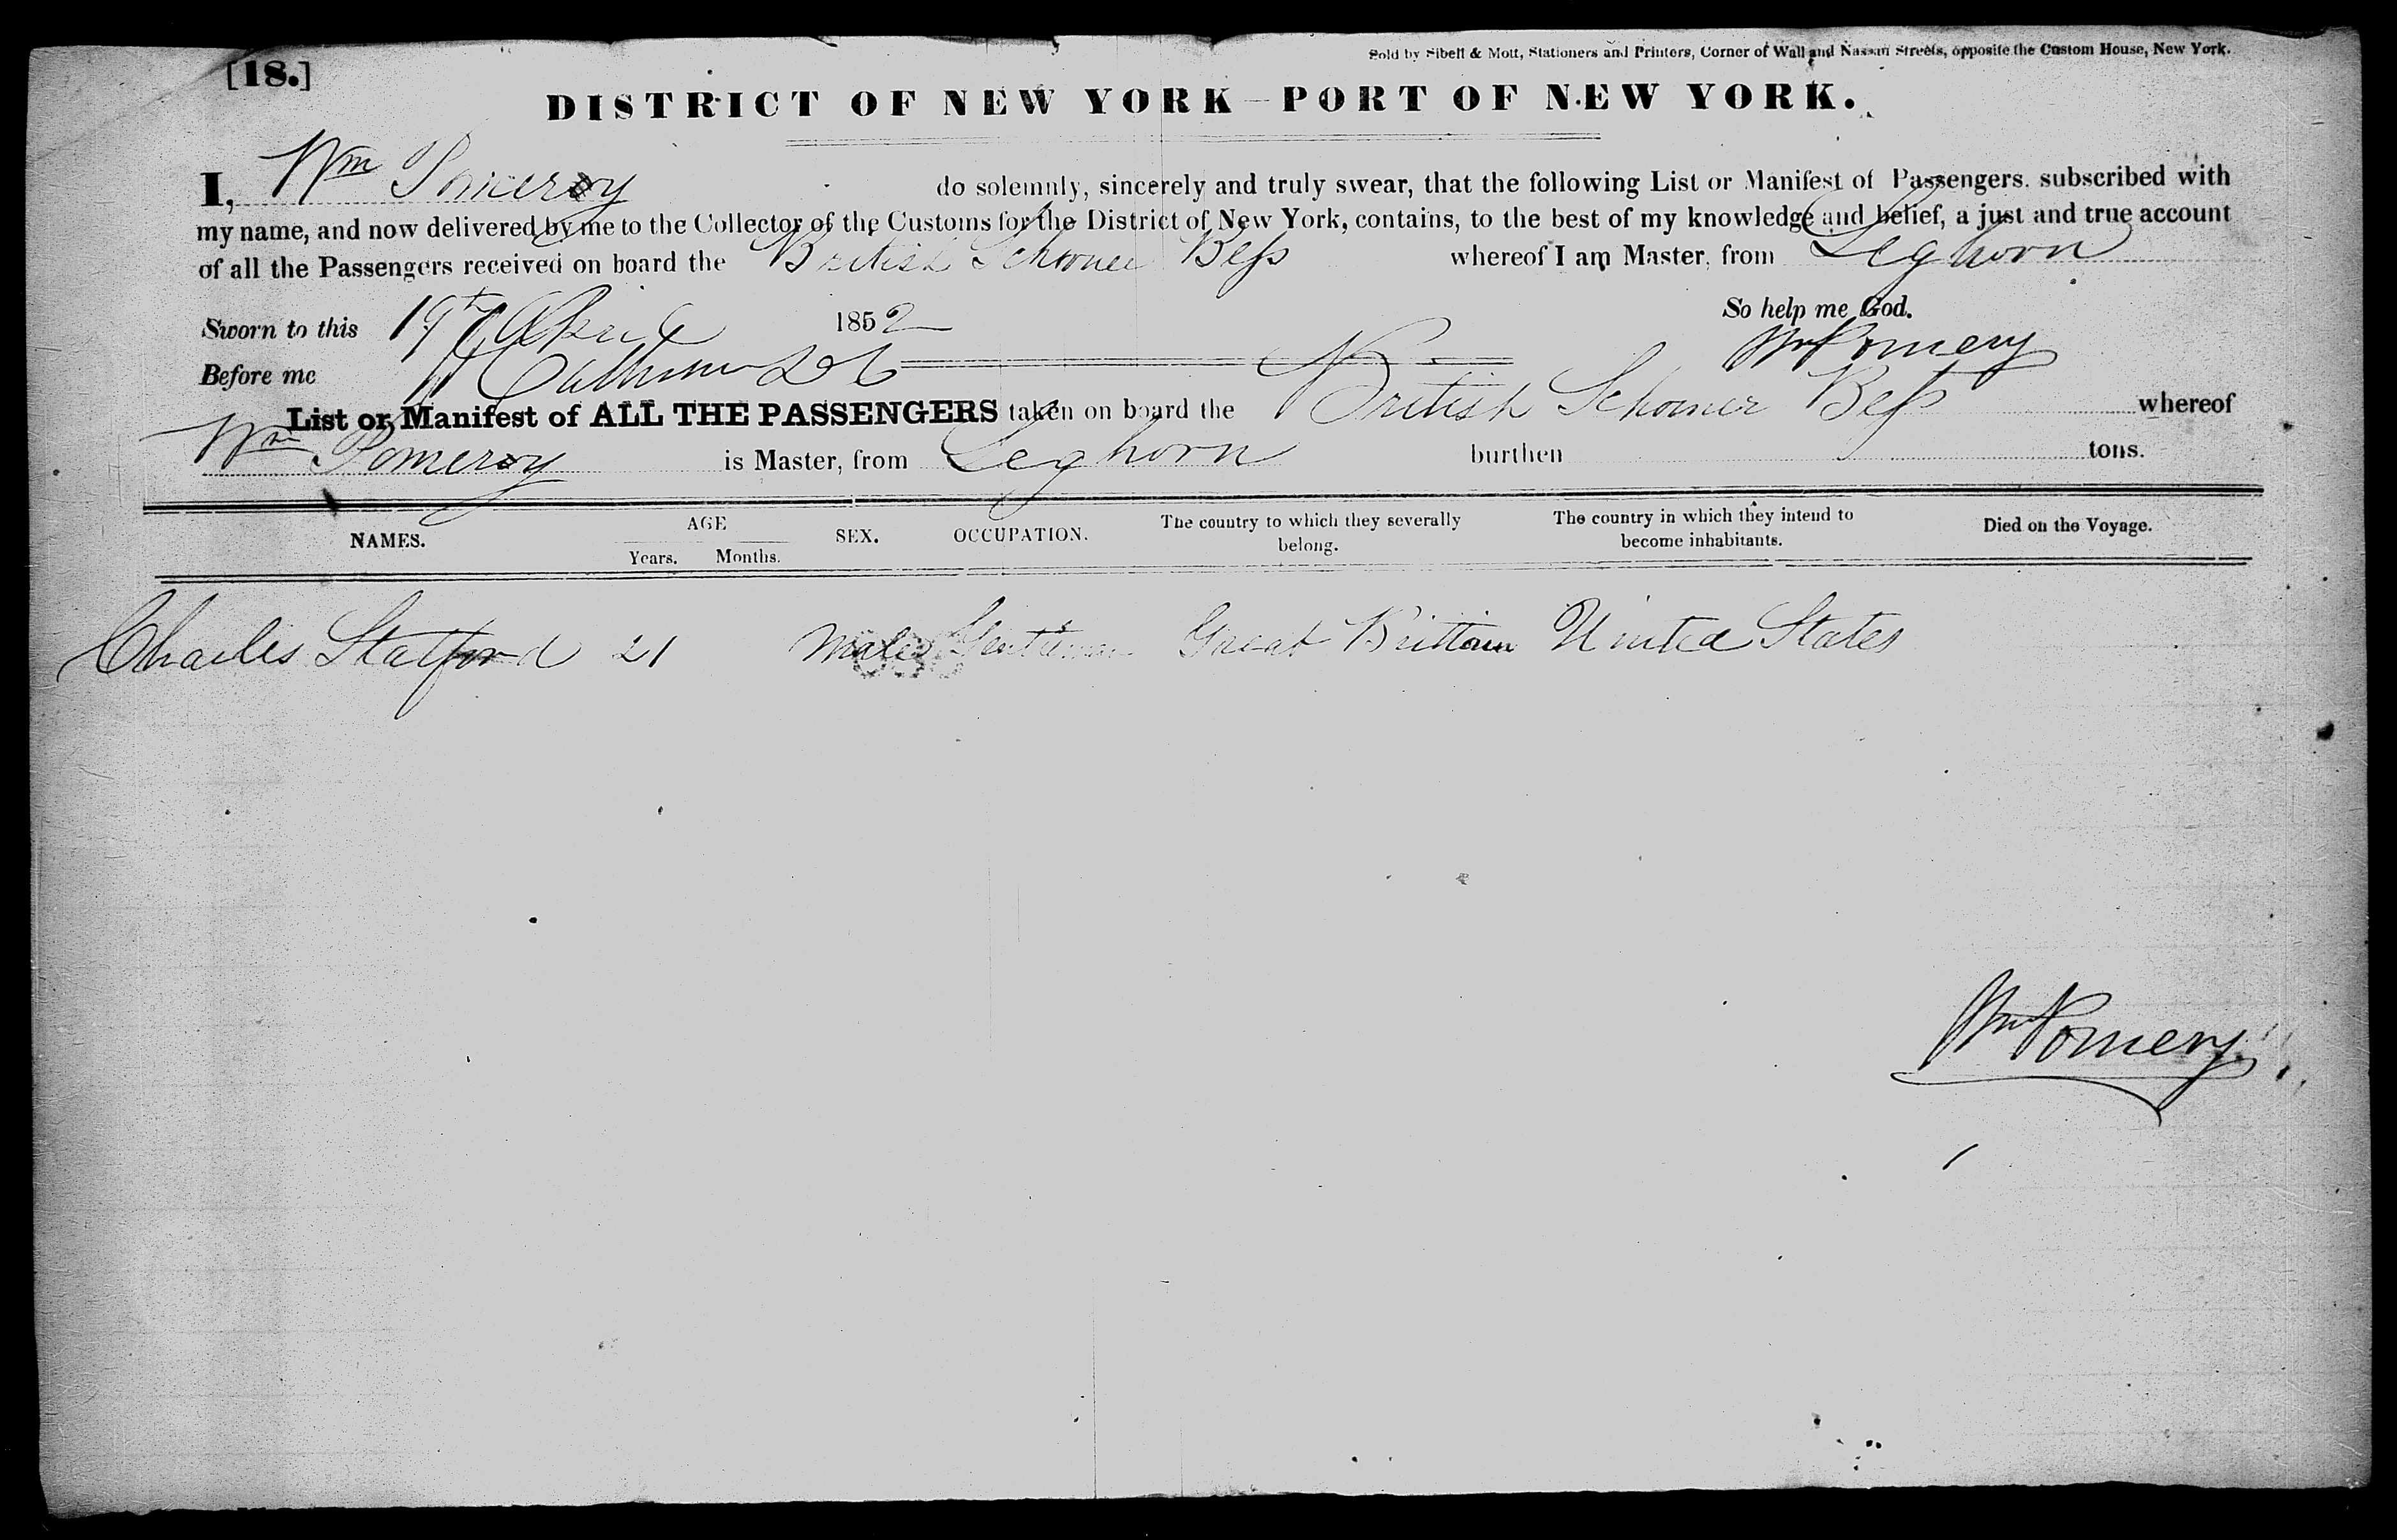 Sold by Sibell & Mott, Stationers and Printers, Corner of Wall and Nassau Streets, opposite the Custom House, New York.
[18.]
DISTRICT OF NEW YORK—PORT OF NEW YORK.
I, Wm Pomeroy do solemnly, sincerely and truly swear, that the following List or Manifest of Passengers, subscribed with
my name, and now delivered by me to the Collector of the Customs for the District of New York, contains, to the best of my knowledge and belief, a just and true account
of all the Passengers received on board the British Schooner Bess whereof I am Master, from Leghorn
So help me God.
Sworn to this 19th April 1852
Wm Pomery
Before me
List or Manifest of ALL THE PASSENGERS taken on board the British Schooner Bess whereof
Wm Pomeroy is Master, from Leghorn burthen tons.
NAMES. AGE Years. Months. SEX. OCCUPATION. The country to which they severally belong. The country in which they intend to become inhabitants. Died on the Voyage.
Charles Statford 21 Male Gentleman Great Brittain United States
Wm Pomery